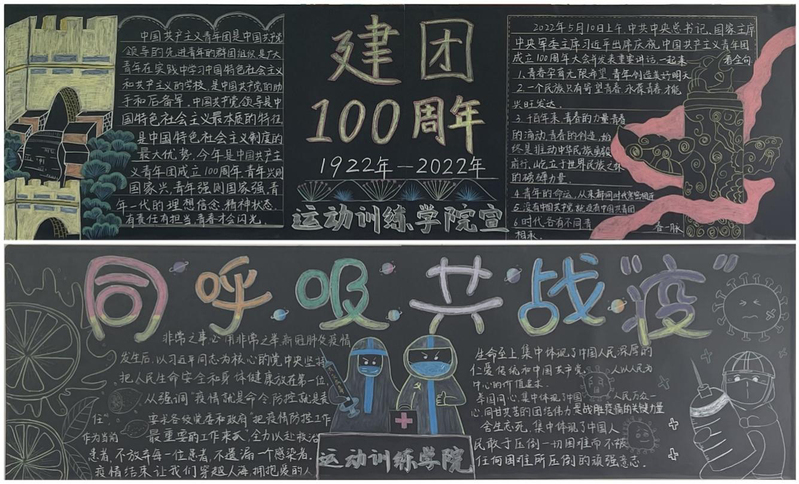 中国共产主义青年团是中国共产党
领导的先进青年的群团组织是广大
青年在实践中学习中国特色社会主义
和共产主义的学校,是中国共产党的助
手和后备军,中国共产党领导是中
国特色社会主义最本质的特征
是中国特色社会主义制度的
最大优势,今年是中国共产主
义青年团成立100周年,青年兴则
国家兴,青年强则国家强,青
年一代的理想信念,精神状态
有责任有担当,青春才会闪光。
建团
100周年
1922年—2022年
运动训练学院宣
2022年5月10日上午,中共中央总书记、国家主席
中央军委主席习近平出席庆祝中国共产主义青年团
成立100周年大会并发表重要讲话,一起来
看金句
1.青春孕育无限希望 青年创造美好明天
2.一个民族只有寄望青春 永葆青春 才能
兴旺发达.
3.十百年来 青春的力量 青春
的涌动 青春的创造,始
终是推动中华民族勇毅
前行,屹立于世界民族之林
的磅礴力量.
4.青年的命运,从来都同时代紧密相连
5.没有中国共产党 就没有中国共青团
6.时代各有不同 青春一脉
相承.
同呼吸共战“疫”
非常之事 心用非常之举 新冠肺炎疫情
发生后,以习近平同志为核心的党中央坚持
把人民生命安全和身体健康放在第一位,
从强调“疫情就是命令 防控就是责
任”
要求各级党委和政府“把疫情防控工作
作为当前
最重要的工作来抓”,全力以赴救治
患者,不放弃每一位患者,不遗漏一个感染者.
疫情结束 让我们穿越人海 拥抱爱的人
运动训练学院
生命至上,集中体现了中国人民深厚的
仁爱传统和中国共产党人以人民为
中心的价值追求.
举国同心,集中体现了中国人民万众一
心,同甘共苦的团结伟力 是战胜疫情的关键力量
舍生忘死,集中体现了中国人
民敢于压倒一切困难而不被
任何困难所压倒的顽强意志.